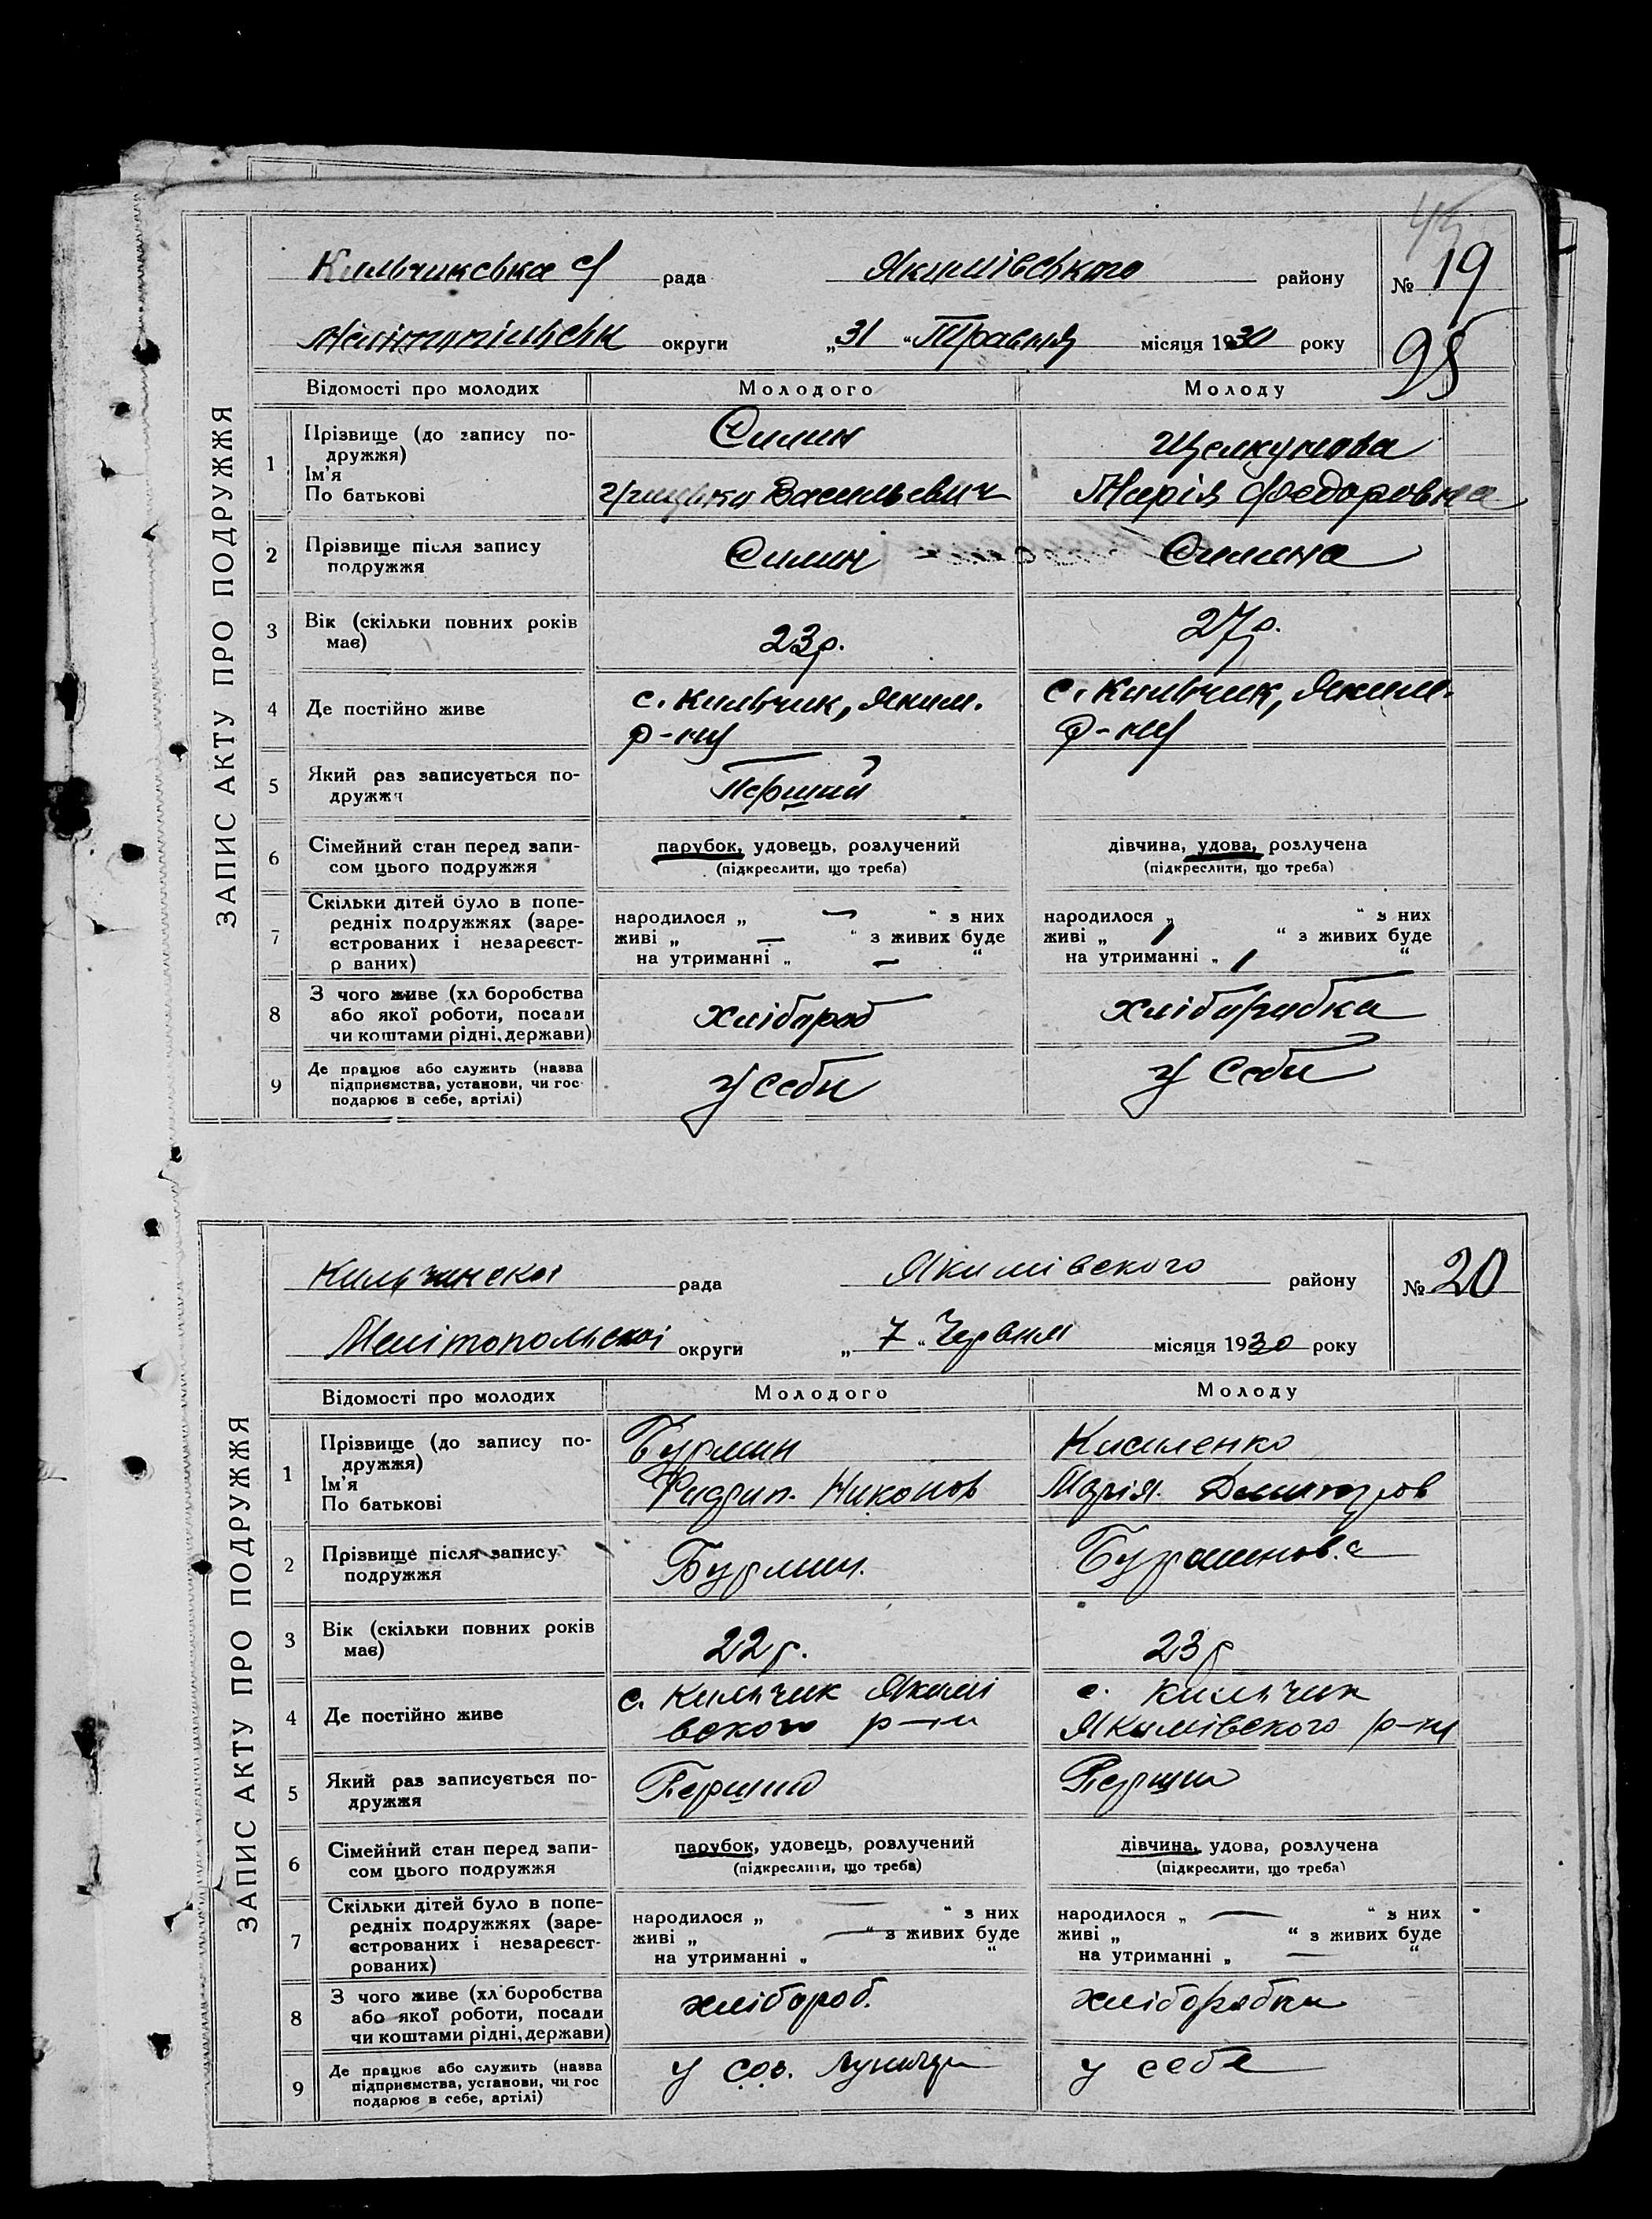 ЗАПИС АКТУ ПРО ПОДРУЖЖЯ
Кильчикська с/ рада Якимівського району № 19
округи „31“ Травня місяця 1930 року 95
Відомості про молодих Молодого Молоду
1 Прізвище (до запису подружжя) Силин Щелкунова
Ім'я
По батькові Васильевич Марія Федоровна
2 Прізвище після запису подружжя Силин Силина
3 Вік (скільки повних років має) 23р. 27р.
4 Де постійно живе с. Кильчик, Яким. р-ну с. Кильчик, Яким. р-ну
5 Який раз записується подружжя Перший
6 Сімейний стан перед записом цього подружжя парубок, удовець, розлучений дівчина, удова, розлучена
(підкреслити, що треба) (підкреслити, що треба)
7 Скільки дітей було в попередніх подружжях (зареєстрованих і незареєстр ваних)
народилося „ — “ з них народилося „ “ з них
живі „ — “ з живих буде живі „ 1 “ з живих буде
на утриманні „ — “ на утриманні „ 1 “
8 З чого живе (хл боробства або якої роботи, посади чи коштами рідні, держави) хлібороб хліборобка
9 Де працює або служить (назва підприємства, установи, чи господарює в себе, артілі) у себи у себи
ЗАПИС АКТУ ПРО ПОДРУЖЖЯ
Кильчинскоі рада Якимівского району № 20
Мелітопольскоі округи „ 7 “ Червня місяця 1930 року
Відомості про молодих Молодого Молоду
1 Прізвище (до запису подружжя) Бурмин Кисиленко
Ім'я
По батькові Никонов Марія. Дмитров
2 Прізвище після запису подружжя Бурмин. Бурминов.а
3 Вік (скільки повних років має) 22р. 23р
4 Де постійно живе с. Кильчик Якимі с. Кильчик
вского р-ни Якимівского р-ни
5 Який раз записується подружжя Перший Перший
6 Сімейний стан перед записом цього подружжя парубок, удовець, розлучений дівчина, удова, розлучена
(підкреслити, що треба) (підкреслити, що треба)
7 Скільки дітей було в попередніх подружжях (зареєстрованих і незареєстрованих)
народилося „ — “ з них народилося „ — “ з них
живі „ — “ з живих буде живі „ “ з живих буде
на утриманні „ “ на утриманні „ — “
8 З чого живе (хл боробства або якої роботи, посади чи коштами рідні, держави) хлібороб. хліборобки
9 Де працює або служить (назва підприємства, установи, чи гос подарює в себе, артілі) у соз. у себе